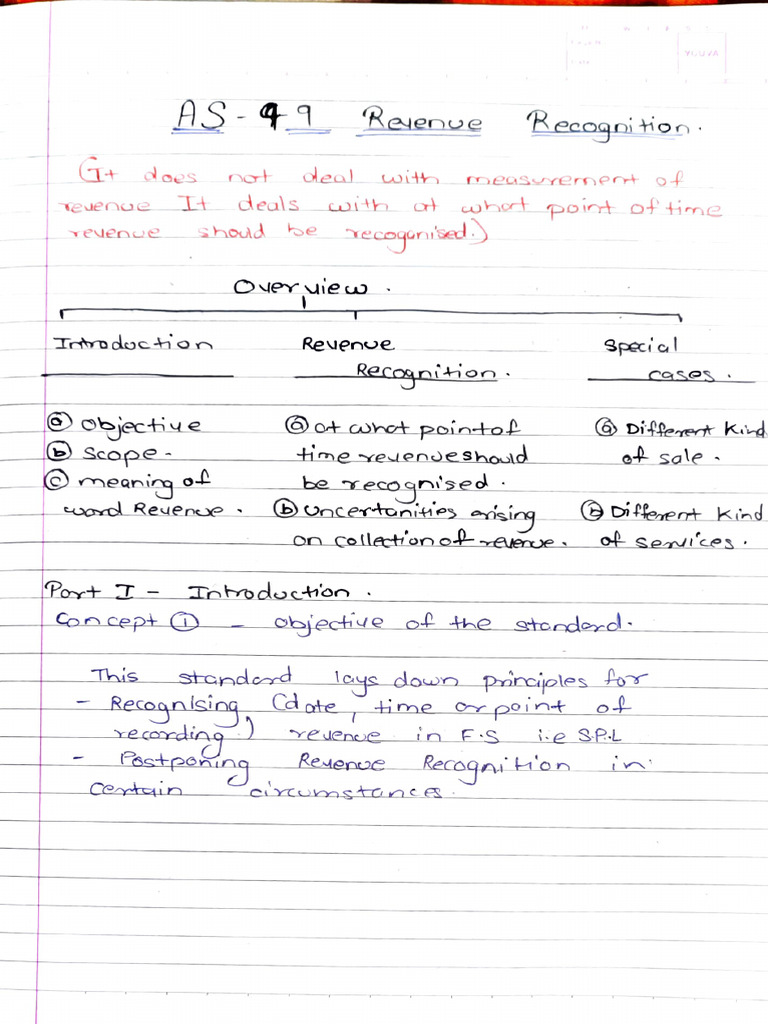 YOUVA
AS-9 Revenue Recognition.
(It does not deal with measurement of
revenue It deals with at what point of time
revenue should be recoganised.)
Overview.
Introduction Revenue Special
Recognition. cases.
ⓐ objective ⓐ at what point of ⓐ Different Kind
ⓑ scope - time revenue should of sale.
ⓒ meaning of be recognised.
word Revenue. ⓑ uncertanities arising ⓑ Different Kind
on collection of revenue. of services.
Part I - Introduction.
Concept ① - objective of the standard.
This standard lays down principles for
- Recognising (date, time or point of
recording) revenue in F.S i.e S.P.L
- Postponing Revenue Recognition in
certain circumstances.